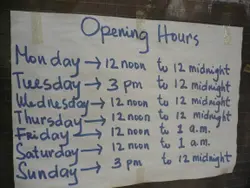 Opening Hours
Monday → 12 noon to 12 midnight
Tuesday → 3 pm to 12 midnight
Wednesday → 12 noon to 12 midnight
Thursday → 12 noon to 12 midnight
Friday → 12 noon to 1 a.m.
Saturday → 12 noon to 1 a.m.
Sunday → 3 pm to 12 midnight